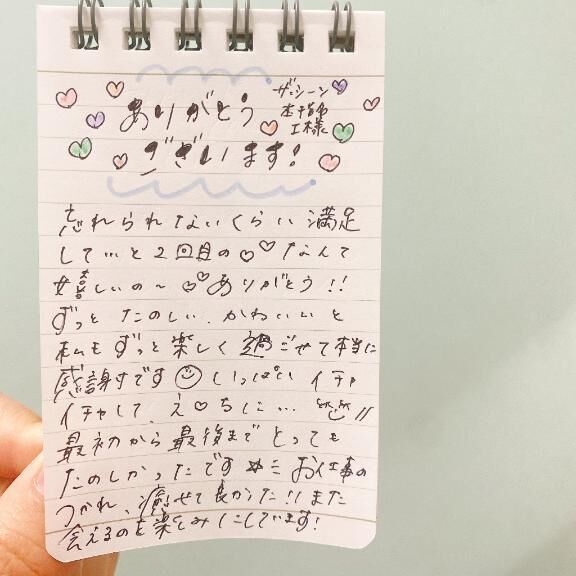 ありがとう
ございます!
ザ・シーン
工様
忘れられないくらい満足
して…と2回目の♡♡なんて
嬉しいの〜♡♡ありがとう!!
ずっと たのしい、かわいいと
私もずっと楽しく過ごせて本当に
感謝です☺いっぱい イチャ
イチャして、え♡ちに…
最初から最後まで とっても
たのしかったです お仕事の
つかれ、癒せて良かった!!また
会えるのを楽しみにしています!